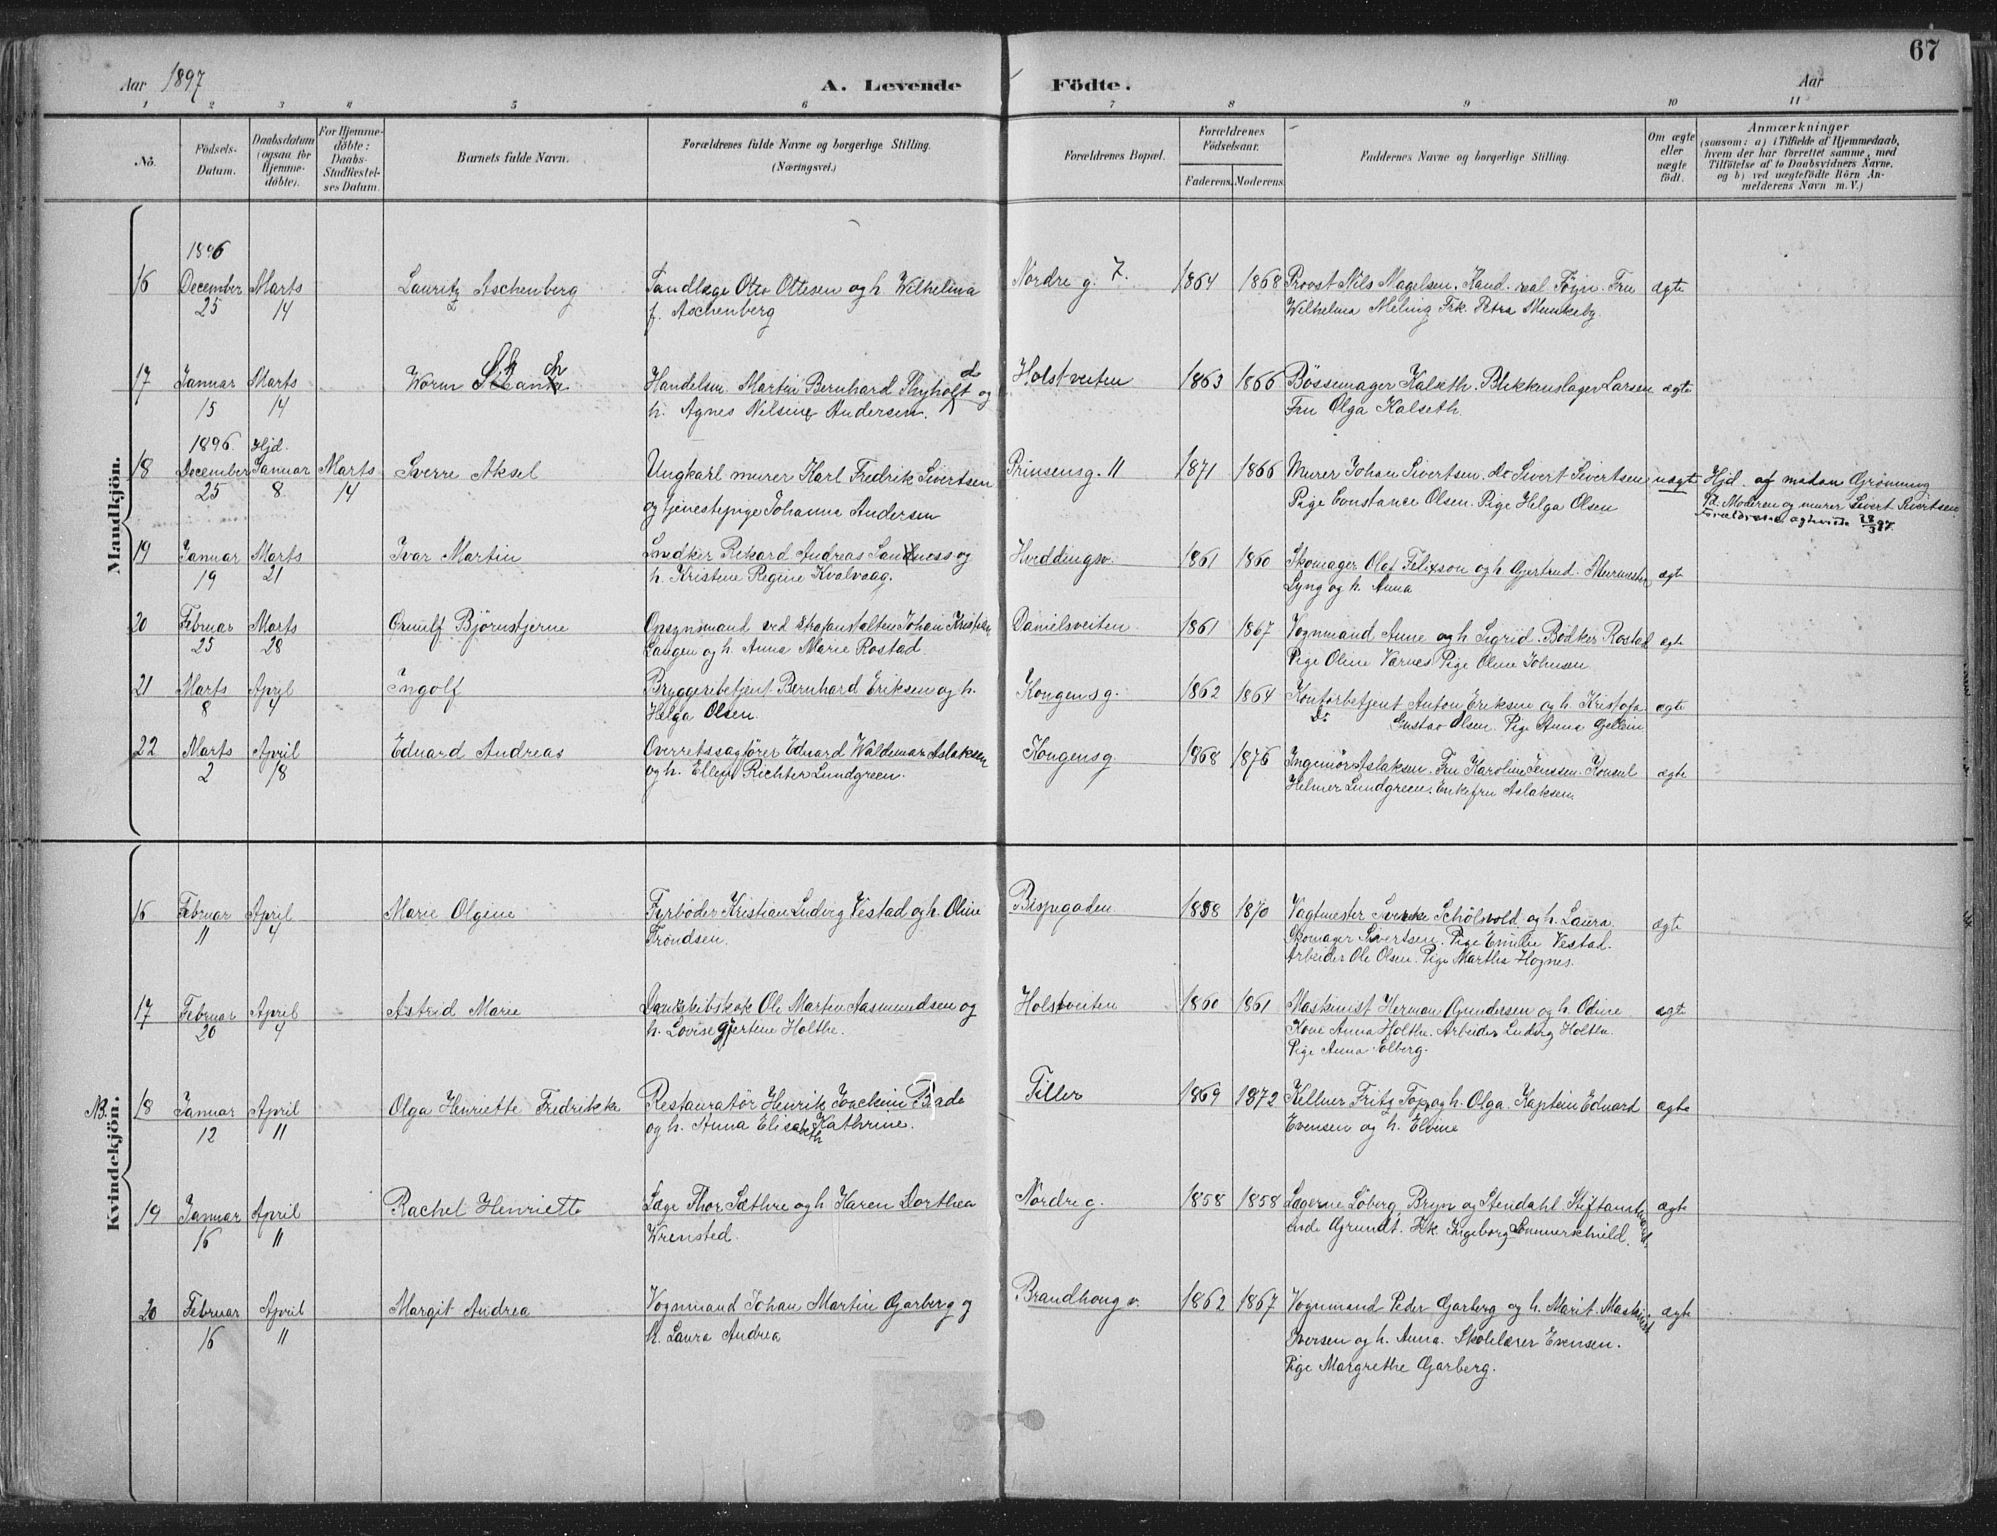 67
Aar 1897
A. Levende Födte.
Aar
1 2 3 4 5 6 7 8 9 10 11
No.
Födsels-Datum.
Daabsdatum (ogsaa for Hjemme-döbte).
For Hjemme-döbte: Daabs-Stadfæstel-ses Datum.
Barnets fulde Navn.
Forældrenes fulde Navne og borgerlige Stilling. (Næringsvei.)
Forældrenes Bopæl.
Forældrenes Födselsaar. Faderens. Moderens.
Faddernes Navne og borgerlige Stilling.
Om ægte eller uægte födt.
Anmærkninger
(saasom: a) i Tilfælde af Hjemmedaab, hvem der har forrettet samme, med Tilföielse af to Daabsvidners Navne, og b) ved uægtefödte Börn An-melderens Navn m. V.)
Mandkjön.
1896
16 December Marts Lauritz Aschenberg Tandlæge Otto Ottesen og h. Wilhelmina Nordre g. 7. 1864 1868 Provst Nils Magelsen. Kand. real Föyn. Fru ægte
25 14 f. Aschenberg Wilhelmina Meling Frk. Petra Munkeby.
17 Januar Marts Worm Handelsm. Martin Bernhard Thyholdt og Holstveiten 1863 1866 Bössemager Kalseth. Blikkenslager Larsen ægte
15 14 h. Agnes Nilsine Andersen. Fru Olga Kalseth.
1896. Hjd.
18 December Januar Marts Sverre Aksel Ungkarl murer Karl Fredrik Sivertsen Prinsensg. 11 1871 1866 Murer Johan Sivertsen. do Sivert Sivertsen uægte Hjd. af madam Grönning
25 8 14 og tjenestepige Johanna Andersen Pige Constance Olsen. Pige Helga Olsen Fd. Moderen og murer Sivert Sivertsen
Forældrene
19 Januar Marts Ivar Martin Snedker Rikard Andreas Sandness og Hveddingsv. 1861 1860 Skomager Olaf Felixson og h. Gjertrud. Murmester ægte
19 21 h. Kristine Regine Kvalvaag. Lyng og h. Anna
20 Februar Marts Ornulf Björnstjerne Opsynsmand ved Strafanstalten Johan Kristian Danielsveiten 1861 1867 Vognmand Arne og h. Sigrid. Bödker Rostad ægte
25 28 Langen og h. Anna Marie Rostad. Pige Oline Værnes Pige Oline Johnsen.
21 Marts April Ingolf Bryggeribetjent Bernhard Eriksen og h. Kongensg. 1862 1864 Kontorbetjent Anton Eriksen og h. Kristofa ægte
8 4 Helga Olsen. Do Gustav Olsen. Pige Anna Gjellein
22 Marts April Edvard Andreas Overretssagförer Edvard Waldemar Aslaksen Kongensg 1868 1876 Ingeniör Aslaksen. Fru Karoline Jenssen. Konsul ægte
2 18 og h. Ellen Richter Lundgreen. Helmer Lundgreen. Enkefru Aslaksen.
Kvindekjön.
16 Februar April Marie Olgine Fyrböder Kristian Ludvig Vestad og h. Oline Bispegaden 1858 1870 Vagtmester Sverke Schölsvold og h. Laura. ægte
11 4 Trondsen. Skomager Sivertsen. Pige Emilie Vestad.
Arbeider Ole Olsen. Pige Martha Hognes.
17 Februar April Astrid Marie Dampskibskok Ole Martin Aasmundsen og Holstveiten 1860 1861 Maskinist Herman Gundersen og h. Odine ægte
20 4 h. Lovise Gjertine Holthe. Kone Anna Holthe. Arbeider Ludvig Holthe
Pige Anna Solberg.
NB. 18 Januar April Olga Henriette Fredrikke Restauratör Henrik Joachim Bade Tiller 1869 1872 Kellner Fritz Top og h. Olga. Kaptein Edvard ægte
12 11 og h. Anna Elisabeth Kathrine. Evensen og h. Elvine
19 Januar April Rachel Henriette Læge Thor Sæthre og h. Karen Dorthea Nordre g. 1858 1858 Lægerne Söberg, Bryn og Stendahl Stiftamtmand ægte
16 11 Wrensted. inde Grundt. Frk. Ingeborg Sommerschield.
20 Februar April Margit Andrea Vognmand Johan Martin Gjarberg og Brandhoug v. 1862 1867 Vognmand Peder Gjarberg og h. Marit. Maskinist ægte
16 11 h. Laura Andrea Iversen og h. Anna. Skolelærer Evensen.
Pige Margrethe Gjarberg.